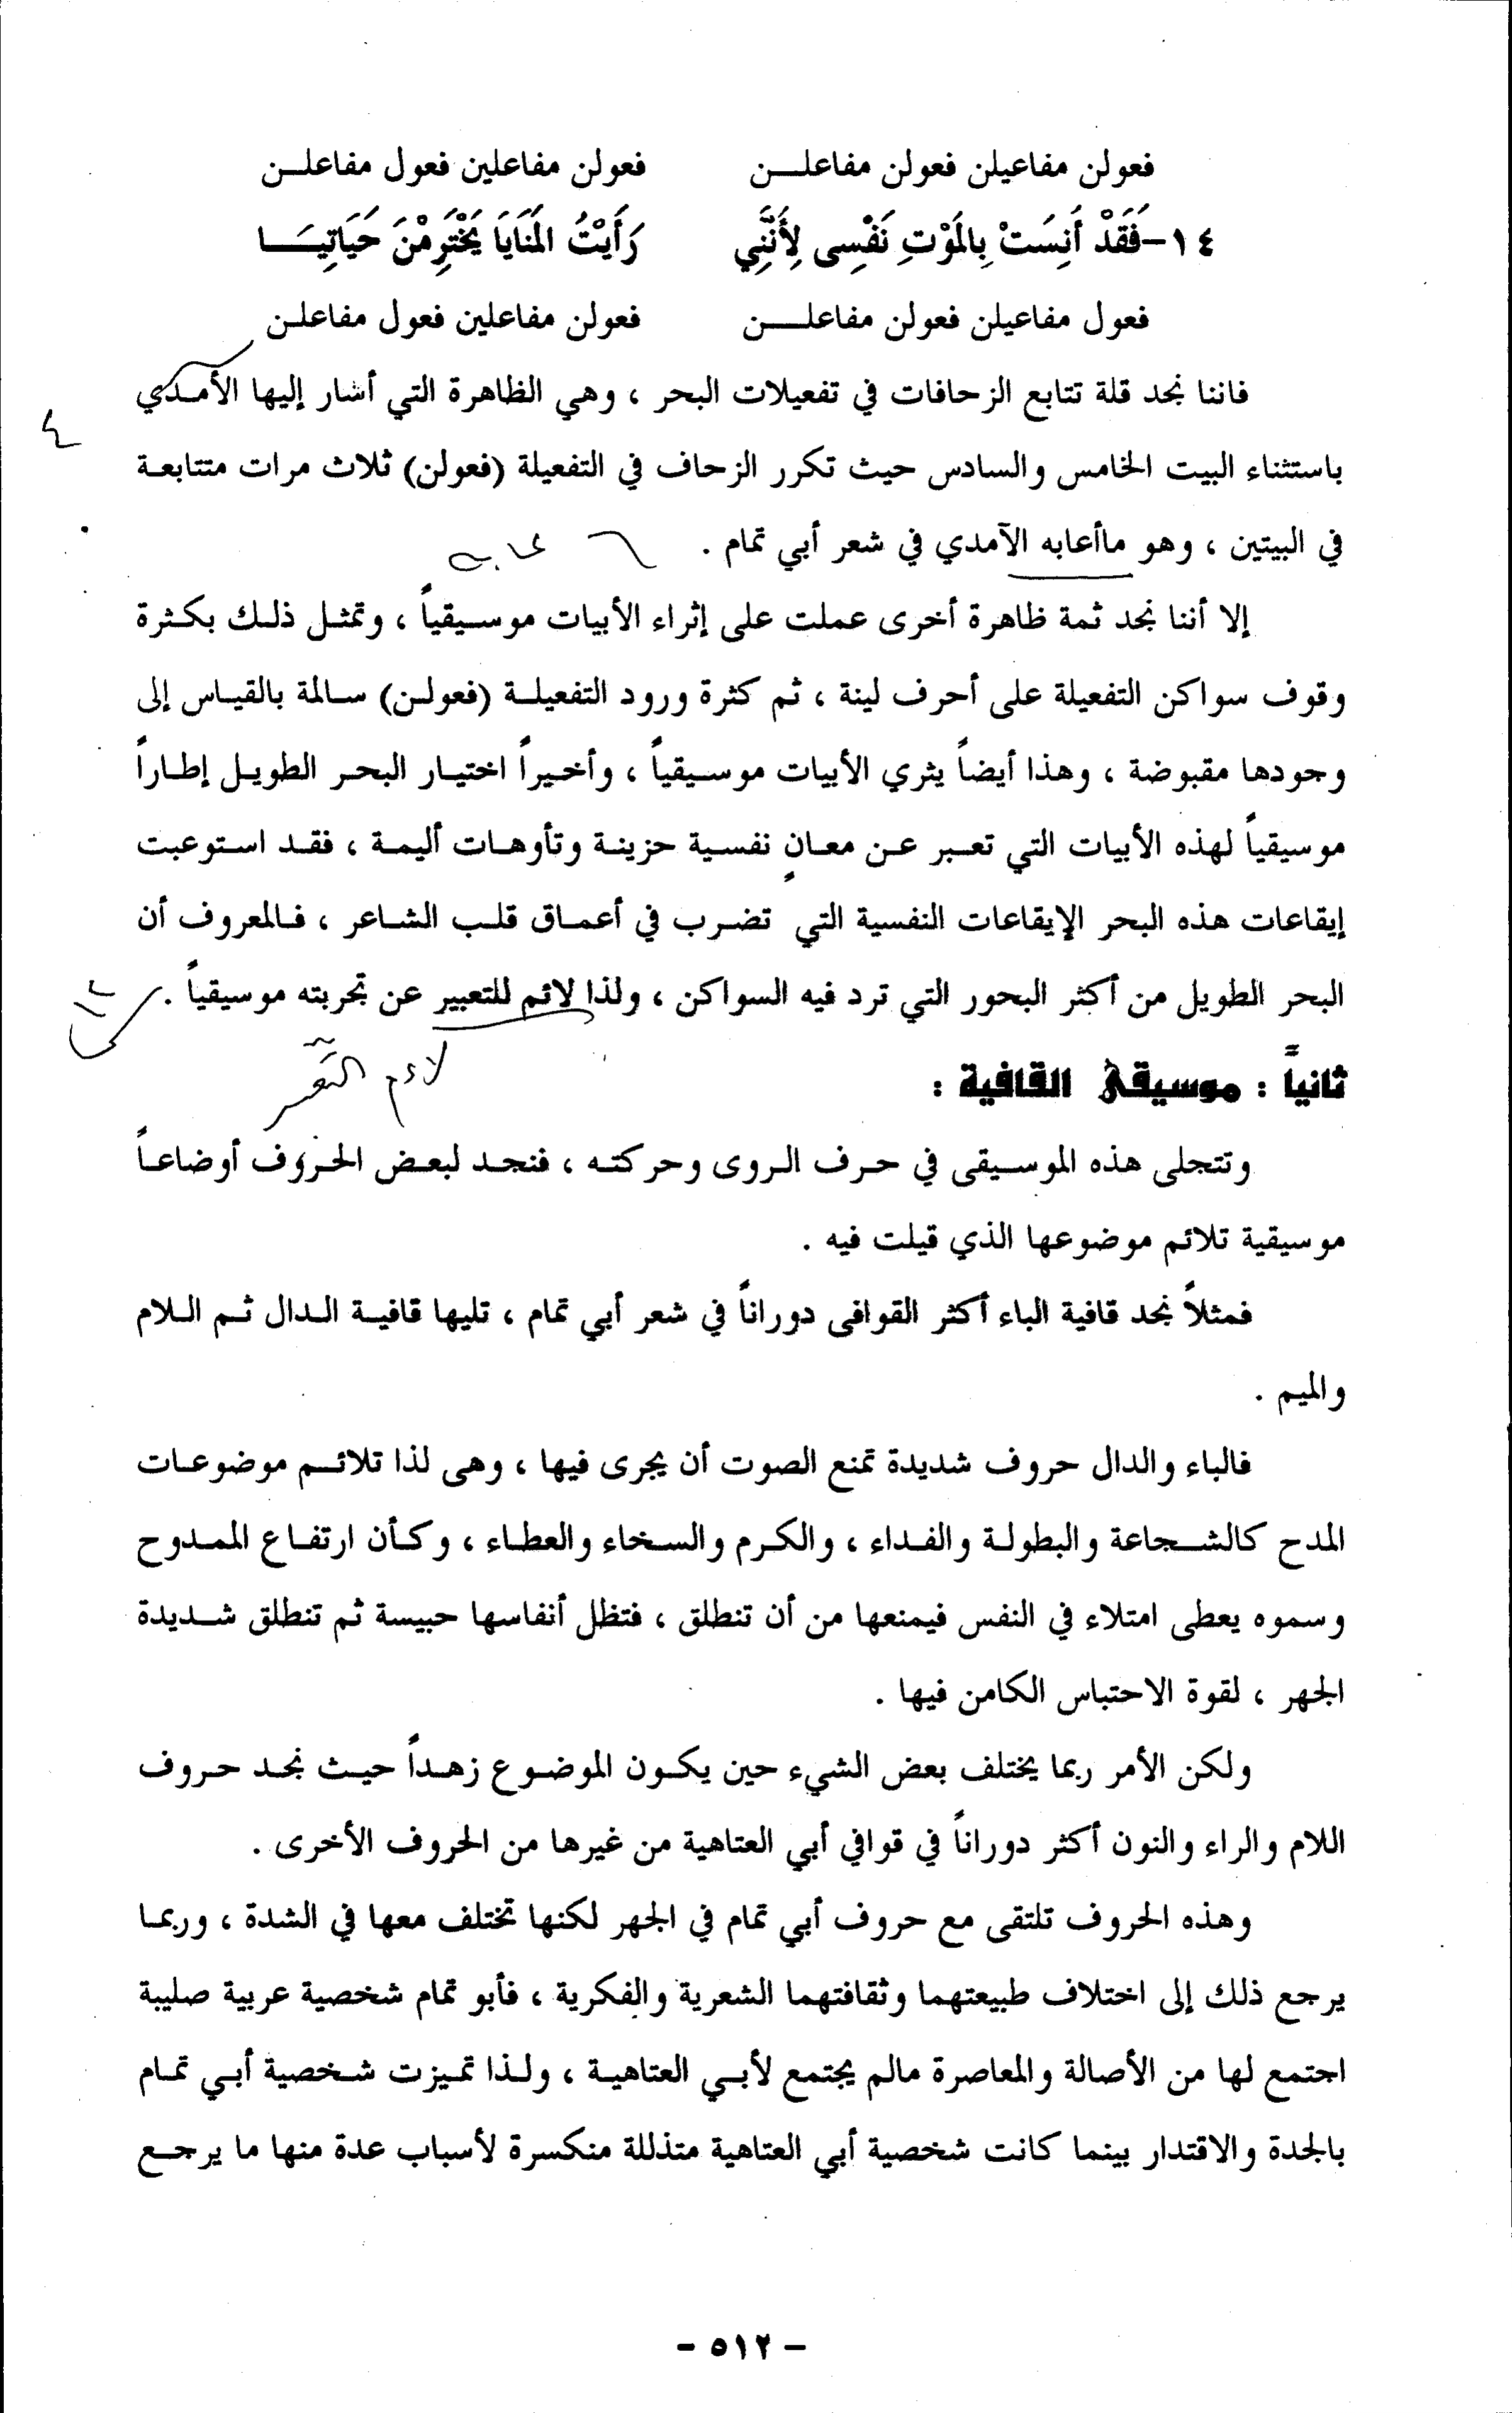 فعولن مفاعيلن فعولن مفاعلـــن فعولن مفاعلين فعول مفاعلــن
١٤-فَقَدْ أَنِسَتْ بِالمَوْتِ نَفْسِى لِأَنَّنِي رَأَيْتُ المَنَايَا يَخْتَرِمْنَ حَيَاتِيَـــا
فعول مفاعيلن فعولن مفاعلـــن فعولن مفاعلين فعول مفاعلـن
فاننا نجد قلة تتابع الزحافات في تفعيلات البحر ، وهي الظاهرة التي أشار إليها الأمـدي
٤
باستثناء البيت الخامس والسادس حيث تكرر الزحاف في التفعيلة (فعولن) ثلاث مرات متتابعـة
في البيتين ، وهو ماأعابه الآمدي في شعر أبي تمام .
عابه
إلا أننا نجد ثمة ظاهرة أخرى عملت على إثراء الأبيات موسـيقياً ، وتمثـل ذلـك بكـثرة
وقوف سواكن التفعيلة على أحرف لينة ، ثم كثرة ورود التفعيلـة (فعولـن) سـالمة بالقيـاس إلى
وجودها مقبوضة ، وهذا أيضاً يثري الأبيات موسـيقياً ، وأخـيراً اختيـار البحـر الطويـل إطـاراً
موسيقياً لهذه الأبيات التي تعـبر عـن معـانٍ نفسـية حزينـة وتأوهـات أليمـة ، فقـد استـوعبت
إيقاعات هذه البحر الإيقاعات النفسية التي تضـرب في أعمـاق قلـب الشـاعر ، فـالمعروف أن
البحر الطويل من أكثر البحور التي ترد فيه السواكن ، ولذا لائم للتعبير عن تجربته موسيقياً .
لاءم
ثانياً : موسيقى القافية :
وتتجلى هذه الموسـيقى في حـرف الـروى وحركتـه ، فنجـد لبعـض الحـروف أوضاعـاً
موسيقية تلائم موضوعها الذي قيلت فيه .
فمثلاً نجد قافية الباء أكثر القوافى دوراناً في شعر أبي تمام ، تليها قافيـة الـدال ثـم الـلام
والميم .
فالباء والدال حروف شديدة تمنع الصوت أن يجرى فيها ، وهى لذا تلائـم موضوعـات
المدح كالشـجاعة والبطولـة والفـداء ، والكـرم والسـخاء والعطـاء ، وكـأن ارتفـاع الممـدوح
وسموه يعطى امتلاء في النفس فيمنعها من أن تنطلق ، فتظل أنفاسها حبيسة ثم تنطلق شـديدة
الجهر ، لقوة الاحتباس الكامن فيها .
ولكن الأمر ربما يختلف بعض الشيء حين يكـون الموضـوع زهـداً حيـث نجـد حـروف
اللام والراء والنون أكثر دوراناً في قوافي أبي العتاهية من غيرها من الحروف الأخرى .
وهذه الحروف تلتقى مع حروف أبي تمام في الجهر لكنها تختلف معها في الشدة ، وربمـا
يرجع ذلك إلى اختلاف طبيعتهما وثقافتهما الشعرية والفكرية ، فأبو تمام شخصية عربية صليبة
اجتمع لها من الأصالة والمعاصرة مالم يجتمع لأبـي العتاهيـة ، ولـذا تمـيزت شـخصية أبـي تمـام
بالجدة والاقتدار بينما كانت شخصية أبي العتاهية متذللة منكسرة لأسباب عدة منها ما يرجـع
- ٥١٢ -